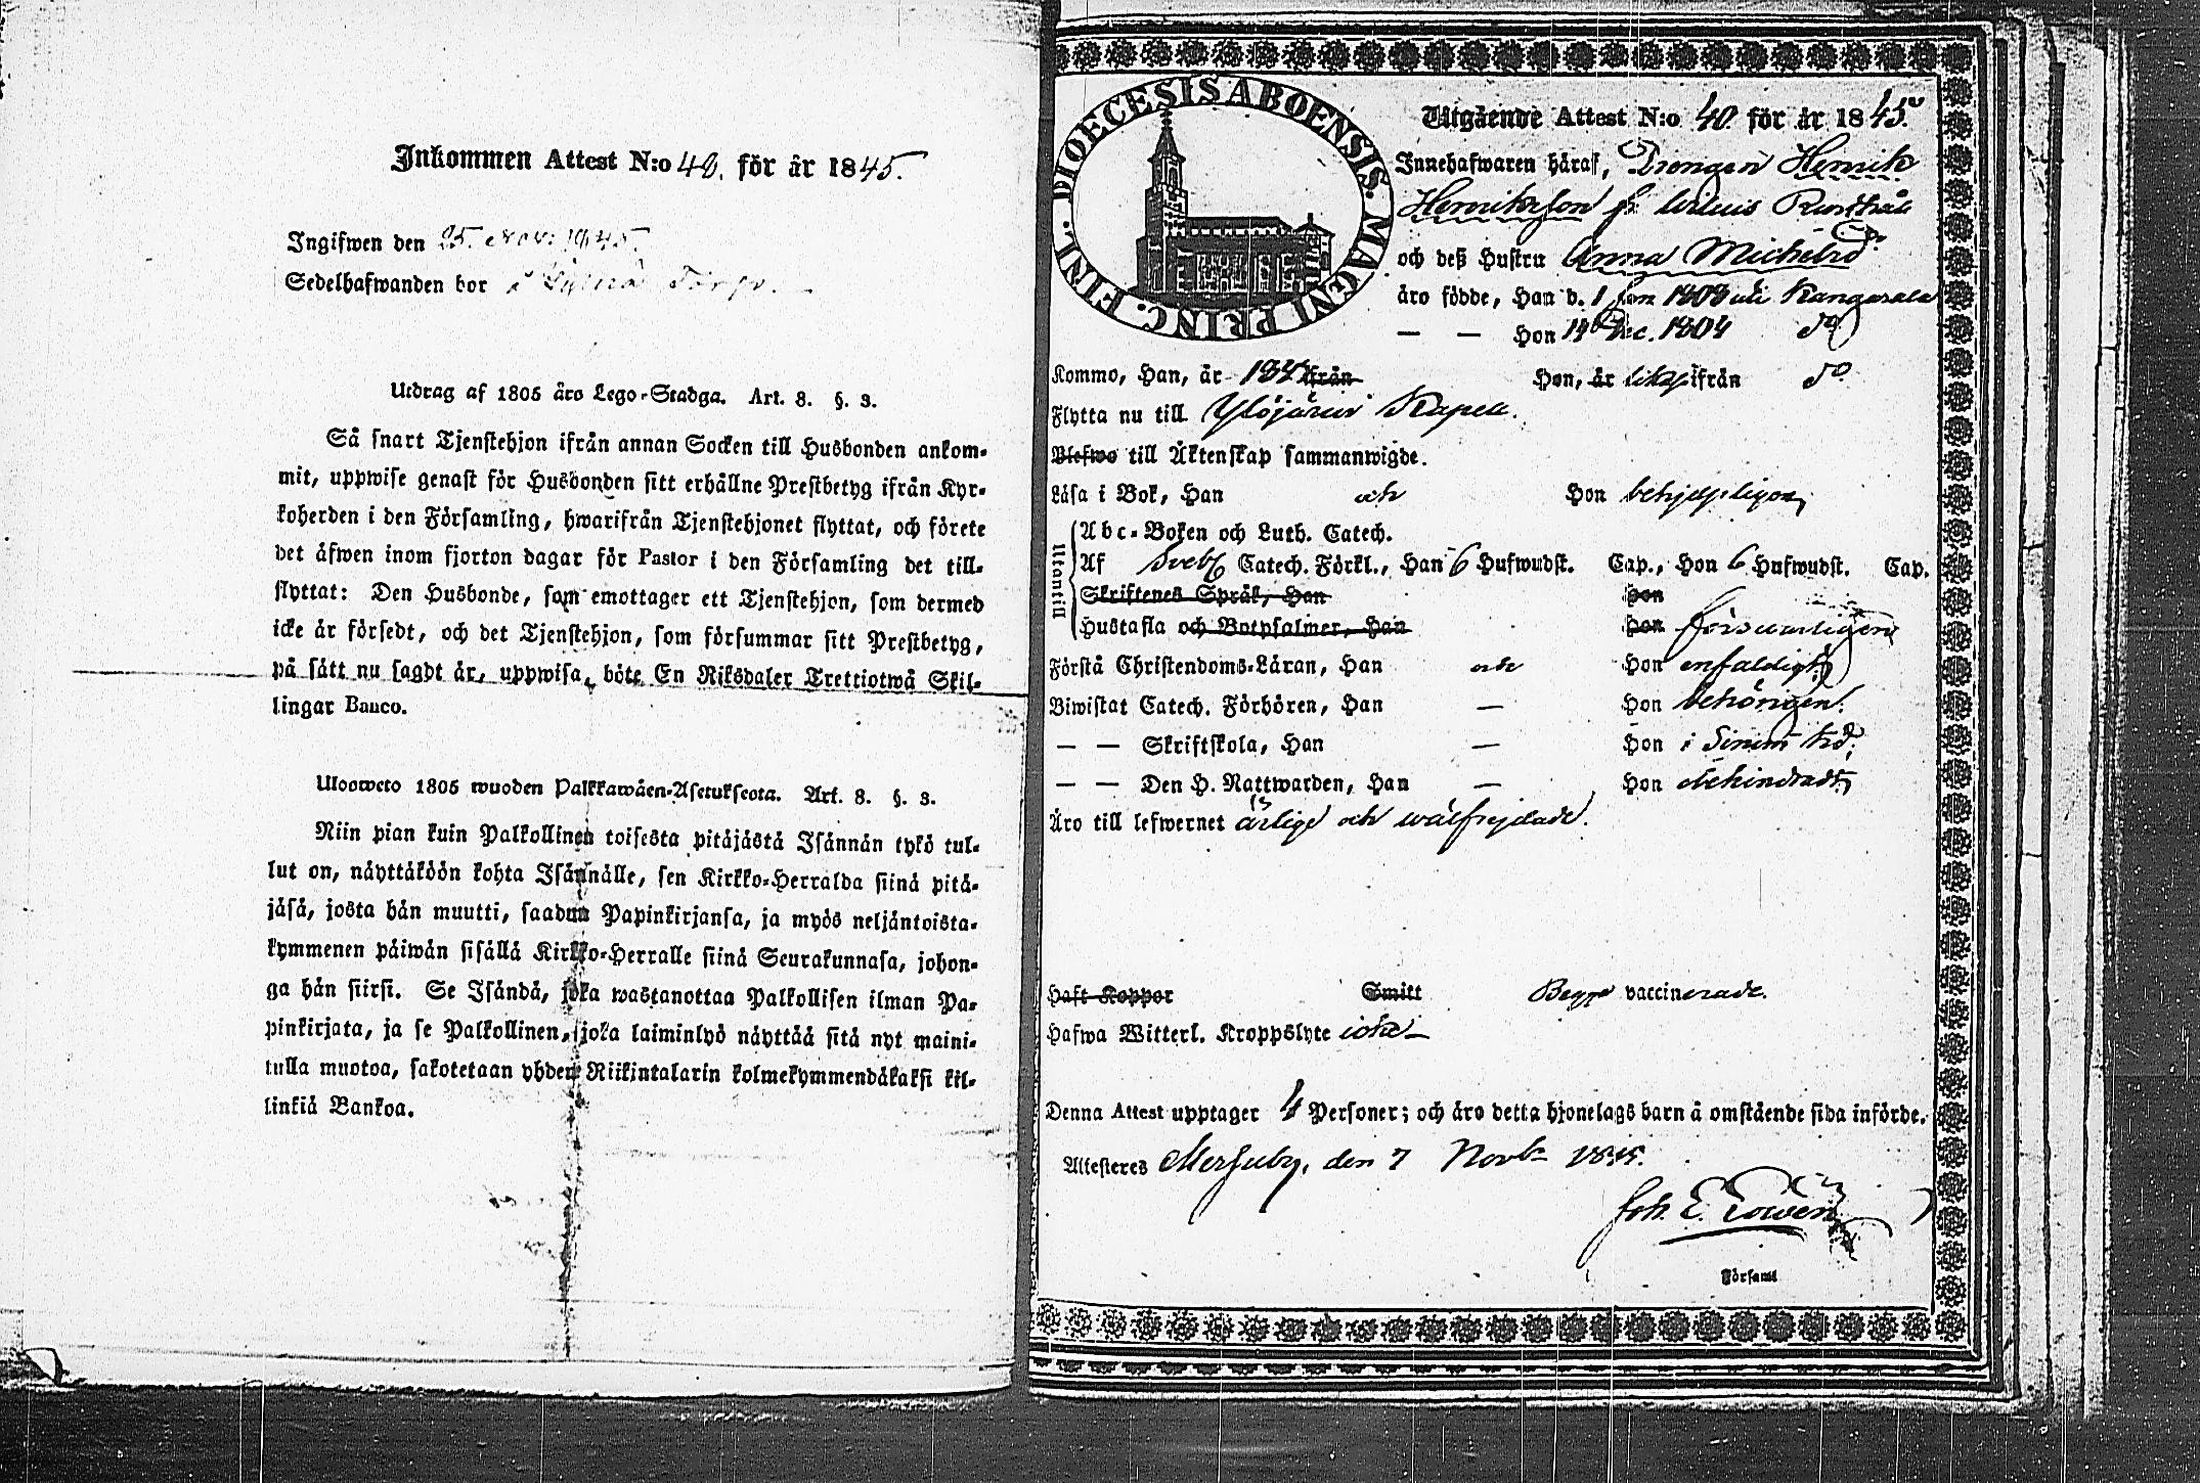 Inkommen Attest N:o 40. för år 1845.
Ingifwen den 25. Nov. 1845.
Sedelhafwanden bor i Torp.
Utdrag af 1805 års Lego-Stadga. Art. 8. §. 3.
Så snart Tjenstehjon ifrån annan Socken till Husbonden ankom-
mit, uppwise genast för Husbonden sitt erhållne Prestbetyg ifrån Kyr-
koherden i den Församling, hwarifrån Tjenstehjonet flyttat, och förete
det äfwen inom fjorton dagar för Pastor i den Församling det till-
flyttat: Den Husbonde, som emottager ett Tjenstehjon, som dermed
icke är försedt, och det Tjenstehjon, som försummar sitt Prestbetyg,
på sätt nu sagdt är, uppwisa, böte En Riksdaler Trettiotwå Skil-
lingar Banco.
Ulosweto 1805 wuoden Palkkawäen-Asetuksesta. Art. 8. §. 3.
Niin pian kuin Palkollinen toisesta pitäjästä Isännän tykö tul-
lut on, näyttäköön kohta Isännälle, sen Kirkko-Herralda siinä pitä-
jäsä, josta hän muutti, saadun Papinkirjansa, ja myös neljäntoista-
kymmenen päiwän sisällä Kirkko-Herralle siinä Seurakunnasa, johon-
ga hän siirsi. Se Isändä, joka wastanottaa Palkollisen ilman Pa-
pinkirjata, ja se Palkollinen, joka laiminlyö näyttää sitä nyt maini-
tulla muotoa, sakotetaan yhden Riikintalarin kolmekymmendäkaksi kil-
linkiä Bankoa.
DIOECESIS ABOENSIS. MAGNI PRINC. FINL.
Utgående Attest N:o 40. för år 1845.
Innehafwaren häraf, Drengen Henrik
Henriksson fr.
och deß Hustru Anna Michelsd:r
äro födde, Han d. 1 Jan 1808 uti Kangasala
— — Hon 14 Dec. 1804 do
Kommo, Han, år 184 ifrån Hon, år likas ifrån do
Flytta nu till Ylöjärvi Kapell.
Blefwo till Äktenskap sammanwigde.
Läsa i Bok, Han och Hon behjelpligen,
Utantill
Abc-Boken och Luth. Catech.
Af Sveb. Catech. Förkl., Han 6 Hufwudst. Cap., Hon 6 Hufwudst. Cap.
Skriftenes Språk, Han Hon
Hustafla och Botpsalmer, Han Hon försvarligen
Förstå Christendoms-Läran, Han och Hon enfaldigt,
Biwistat Catech. Förhören, Han — Hon behörigen.
— — Skriftskola, Han — Hon i sinom tid,
— — Den H. Nattwarden, Han — Hon obehindradt,
Äro till lefwernet ärlige och wälfrejdade.
Haft Koppor Smitt Begge vaccinerade.
Hafwa Witterl. Kroppslyte icke —
Denna Attest upptager 4 Personer; och äro detta hjonelags barn å omstående sida införde.
Attesteres Messuby, den 7 Novb 1845.
Joh. E.
Församl